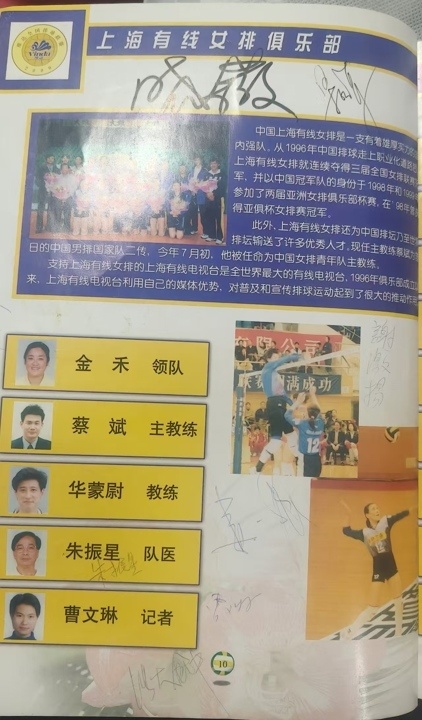 上海有线女排俱乐部
中国上海有线女排是一支有着雄厚实力的
内强队。从1996年中国排球走上职业化道路
上海有线女排就连续夺得三届全国女排联赛
军。并以中国冠军队的身份于1998年和1999
参加了两届亚洲女排俱乐部杯赛。在'98年
得亚俱杯女排赛冠军。
此外,上海有线女排还为中国排坛乃至世
排坛输送了许多优秀人才。现任主教练蔡斌为
日的中国男排国家队二传,今年7月初,他被任命为中国女排青年队主教练。
支持上海有线女排的上海有线电视台是全世界最大的有线电视台,1996年俱乐部成立以
来,上海有线电视台利用自己的媒体优势,对普及和宣传排球运动起到了很大的推动作用
限公司
联赛圆满成功
12
金禾 领队
蔡斌 主教练
华蒙尉 教练
朱振星 队医
朱振星
曹文琳 记者
10